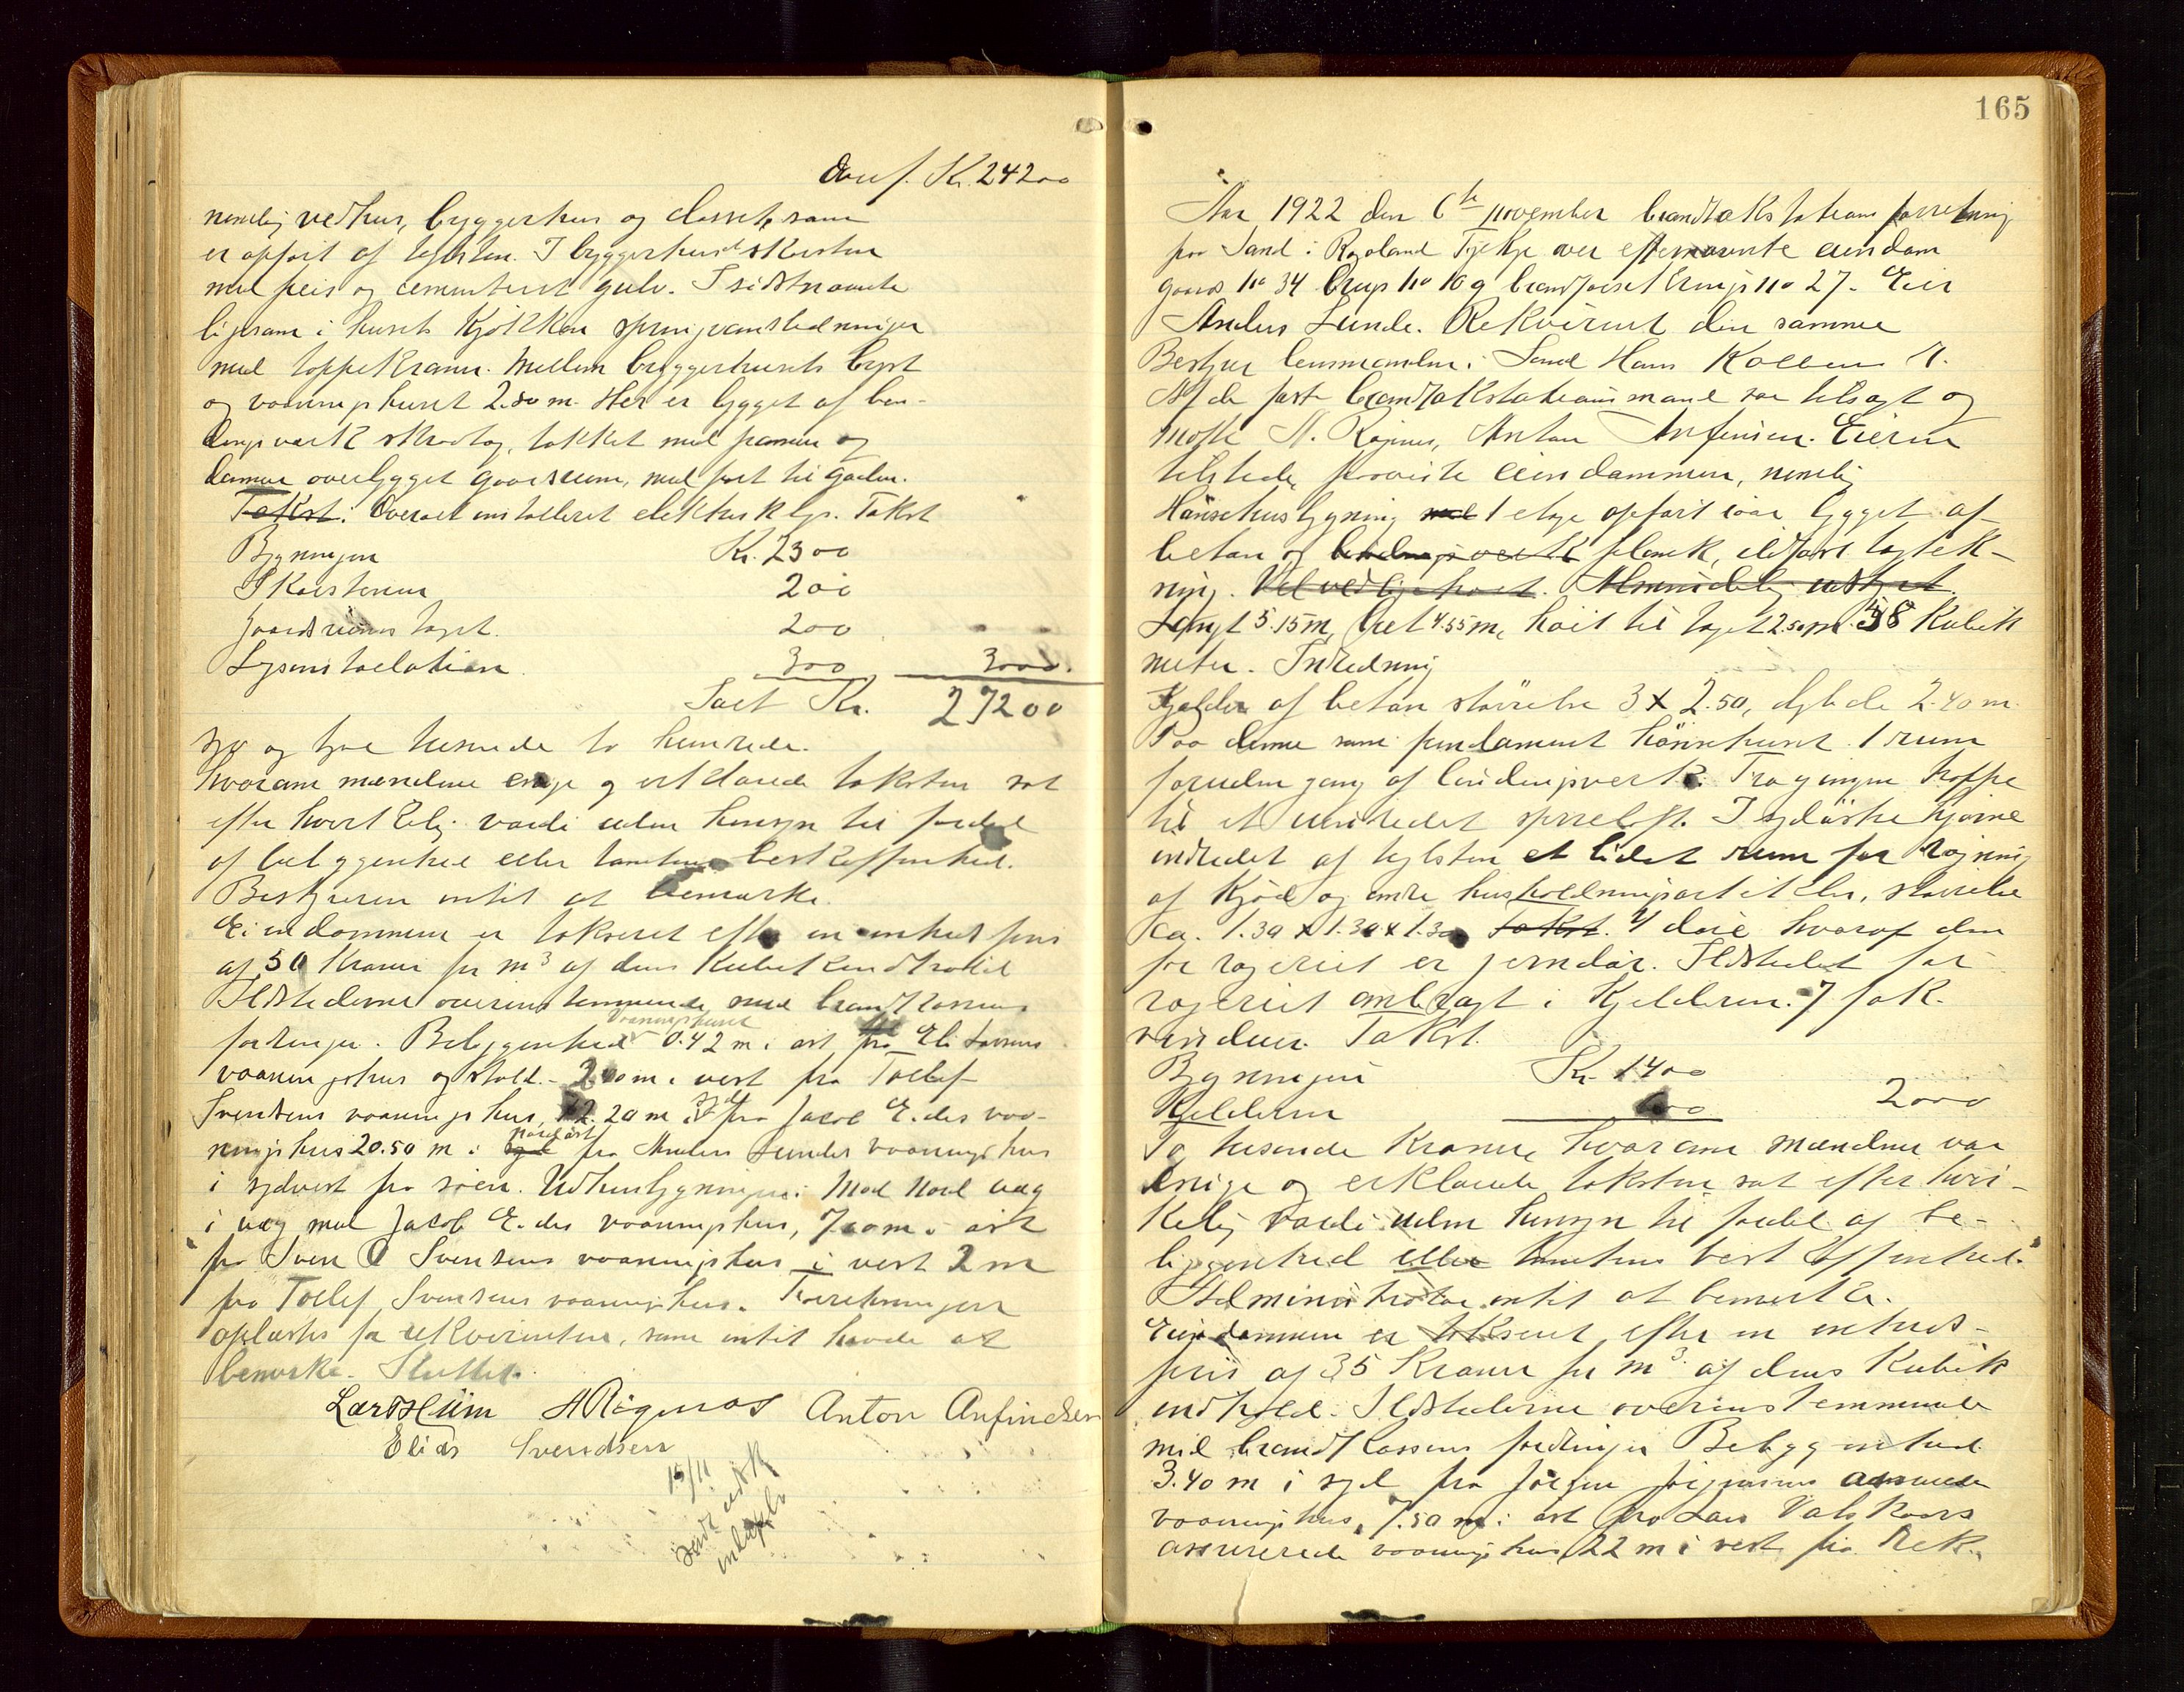 Kr. 24200
nemlig vedhus, byggerhus og closet, som
er opført af teglsten. I byggerhuset skorsten
med peis og cementeret gulv. I sidstnævnte
ligesom i husets Kjøkken springvandsledninger
med tappekraner. Mellem byggerhusets
og vaaningshuset 2.80 m. Her er bygget af bin-
dingsverk skraatag, tækket med panner og
danner overbygget gaardsrum, med port til gaden.
Takst: Overalt installeret elektrisk lys. Takst
Bygningen Kr. 2300
Skorstenen 200
Gaardsrums taget. 200
Lysinstallation. 300 3000.
Talt Kr. 27200
syv og tyve tusinde to hundrede.
hvorom mændene enige og erklærede taksten sat
efter hvirkelig værdi uden hensyn til fordel
af beliggenhed eller tomtens beskaffenhed.
Bestyreren intet at bemærke.
Eiendommen er takseret efter en enheds pris
af 50 Kroner pr m³ af dens Kubikindhold
Ildstederne overensstemmende med brandkassens
fordringer. Beliggenhed vaaningshuset 0.42 m. i øst fra Eli Larsens
vaaningshus og stald. - 2.00 m. i vest fra Tollef
Svendsens vaaningshus, 12.20 m i syd fra Jacob E.des vaa-
ningshus 20.50 m. i syd nordøst fra Anders Lundes vaaningshus
i sydvest fra søen. Udhusbygningen: Mod Nord væg
i væg med Jacob E.des vaaningshus, 7.00 m. i øst
fra Sven Svensens vaaningshus i vest 2 m
fra Tollef Svensens vaaningshus. Forretningen
oplæstes for rekvirenten, som intet havde at
bemærke. Sluttet.
Lars Hiim A Rignæs Anton Anfindsen
Elias Svendsen
15/11
sendt udsk
165
Aar 1922 den 6te november brandtakstations forretning
paa Sand i Rogaland Fylke over efternævnte eiendom
gaards no 34 brugs no 16 og brandforsikrings no 27. Eier
Anders Lunde. Rekvirent den samme
Bestyrer lensmanden i Sand Hans Kolben
Af de faste brandtakstationsmænd var tilsagt og
mødte A. Rignæs, Anton Anfinsen. Eieren
tilstede, paaviste eiendommen, nemlig
Hønsehusbygning med 1 etage opført iaar bygget af
beton og bindingsverk plank, ildfast tagtæk-
ning. Vel vedligeholdt. Almindelig udstyret.
Længt 5.15 m, bret 4.55 m, høit til taget 2.50 m. 58 Kubik
meter. Indredning
Kjelder af beton størrelse 3 x 2.50, dybde 2.40 m.
Paa denne som fundament hønsehuset. 1 rum
foruden gang af bindingsverk. Fra gangen trappe
til et uindredet sperreloft. I sydøstre hjørne
indredet af teglsten et lidet rum for røgning
af Kjød og andre husholdningsartikler, størrelse
ca. 1.30 x 1.30 x 1.30 Takst. 4 døre hvoraf den
for røgeriet er jerndør. Ildstedet for
røgeriet anbragt i Kjelderen. 7 fok.
vinduer. Takst.
Bygningen Kr. 1400
Kjelderen 600 2000
To tusende Kroner, hvorom mændene var
enige og erklærede taksten sat efter hvir-
kelig værdi uden hensyn til fordel af be-
liggenhed eller tomtens beskaffenhed.
Administrator intet at bemærke.
Eiendommen er takseret efter en enheds-
pris af 35 Kroner pr m³ af dens Kubik
indhold. Ildstederne overensstemmende
med brandkassens fordringer Beliggenhed
3.40 m i syd fra Jørgen Jørgensens assurerede
vaaningshus, 7.50 m. i øst fra Lars
assurerede vaaningshus, 22 m i vest fra Rek.